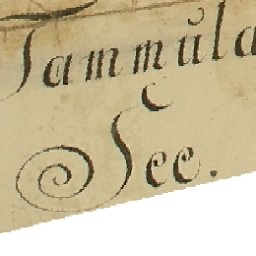 Tammŭla
See.